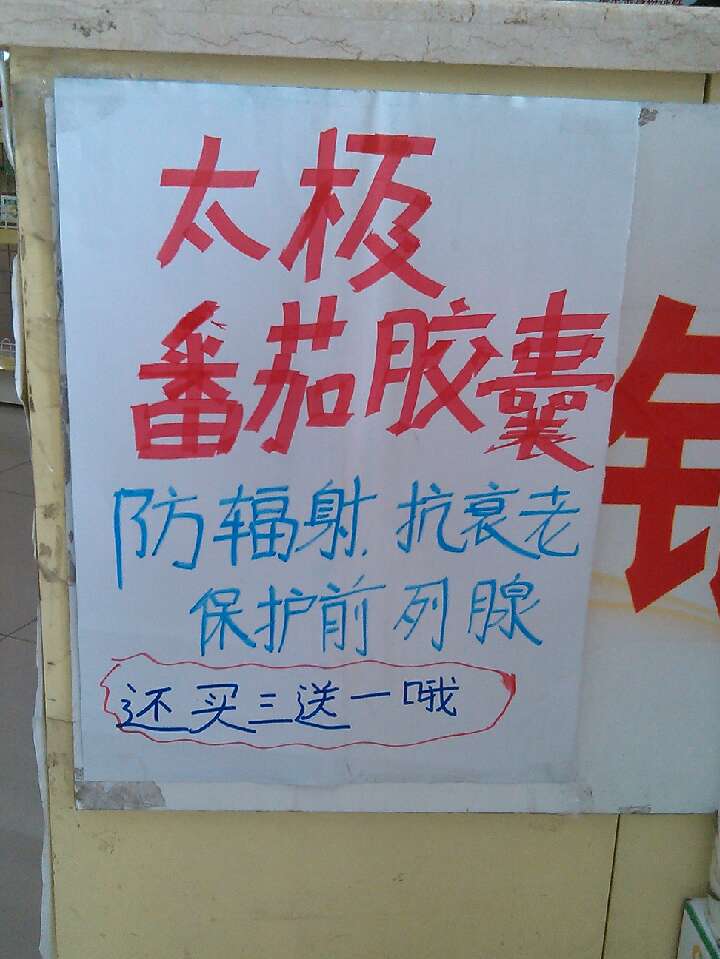 太极
番茄胶囊
防辐射.抗衰老
保护前列腺
还买三送一哦